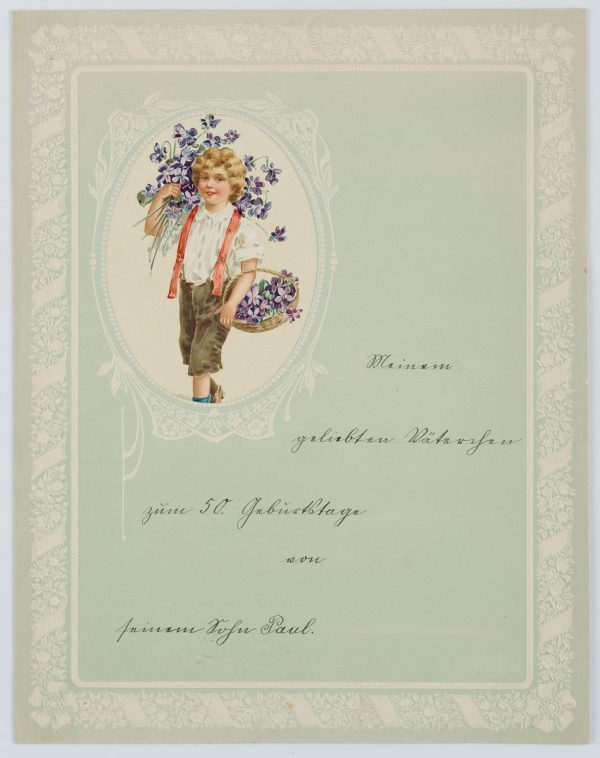 Meinem
geliebten Väterchen
zum 50. Geburtstage
von
seinem Sohn Paul.